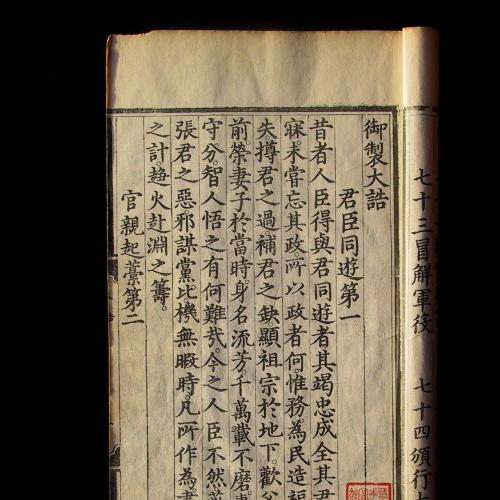 七十三冒解軍役 七十四頒行
御製大誥
君臣同遊第一
昔者人臣得與君同遊者。其竭忠成全其君
寐。未嘗忘其政。所以政者何。惟務為民造福
失。撙君之過。補君之缺。顯祖宗於地下。歡父
前。榮妻子於當時。身名流芳。千萬載不磨。
守分。智人悟之有何難哉。今之人臣不然。
張君之惡。邪謀黨比。機無暇時。凡所作為
之計。趨火赴淵之籌。
官親起藁第二